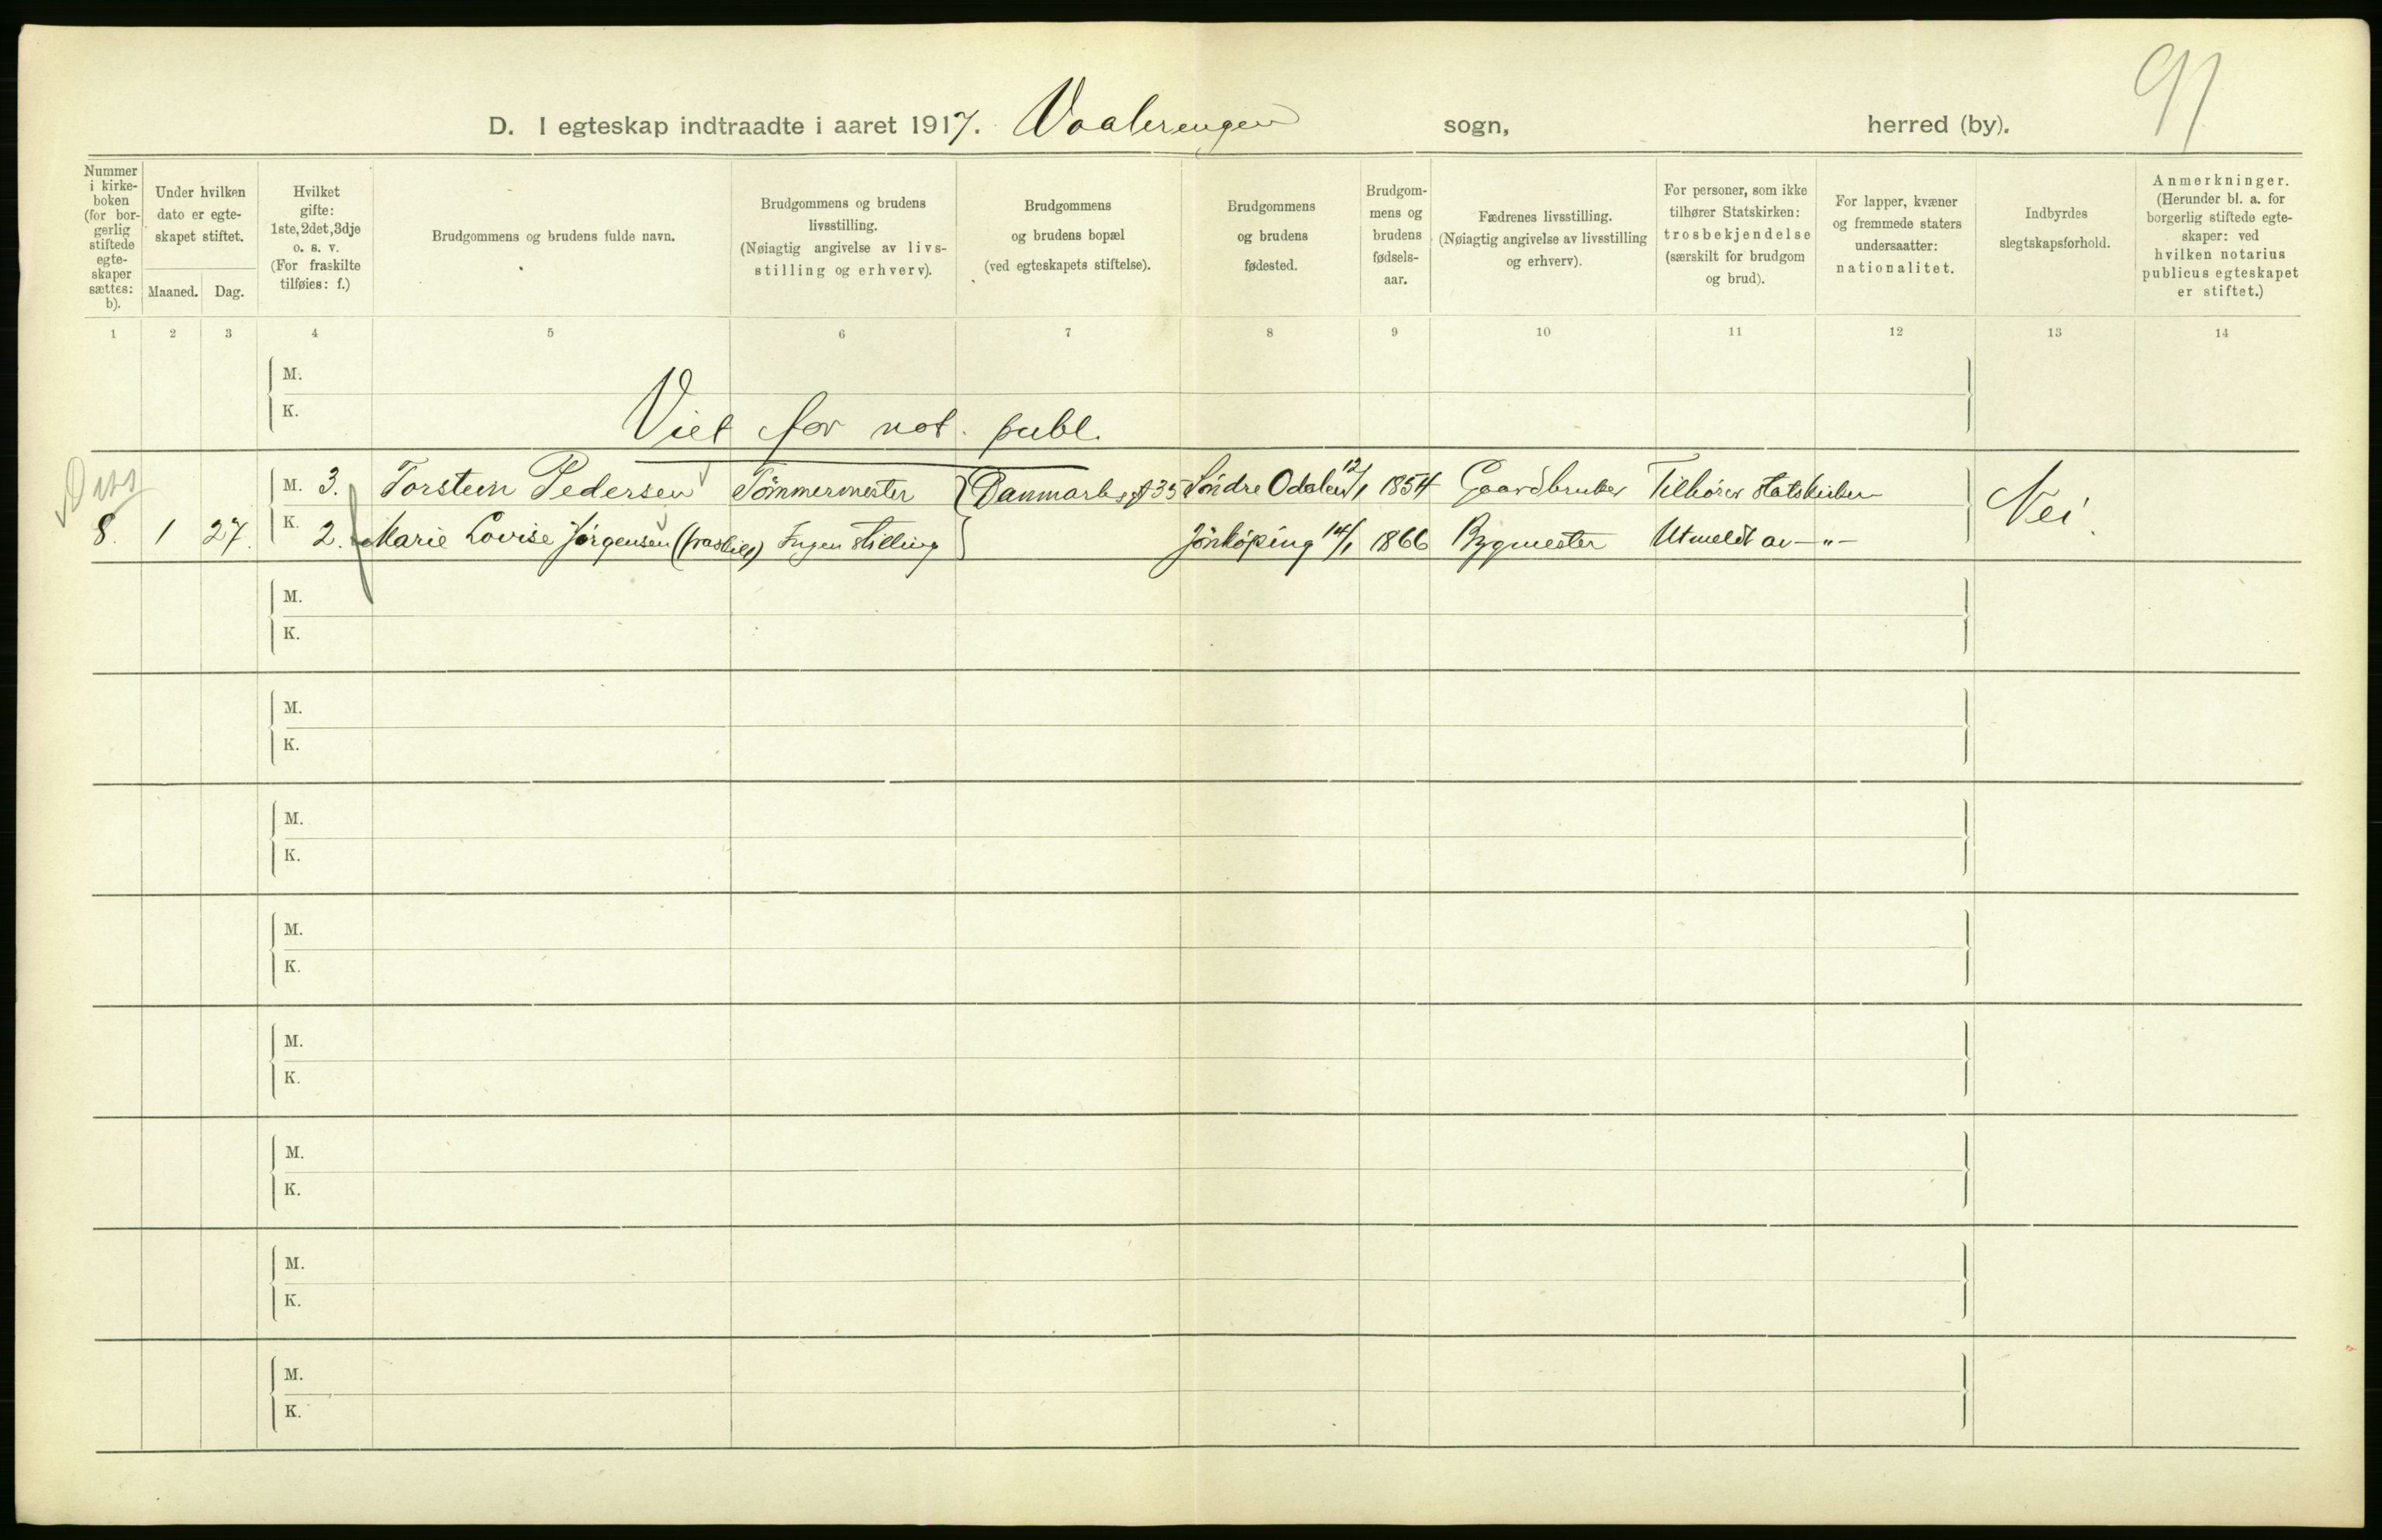 91
D. I egteskap indtraadte i aaret 1917. Vaalerengen sogn, herred (by).
Nummer i kirkeboken (for borgerlig stiftede egteskaper sættes: b).
Under hvilken dato er egteskapet stiftet.
Maaned. Dag.
Hvilket gifte: 1ste, 2det, 3dje o. s. v. (For fraskilte tilføies: f.)
Brudgommens og brudens fulde navn.
Brudgommens og brudens livsstilling. (Nøiagtig angivelse av livsstilling og erhverv).
Brudgommens og brudens bopæl (ved egteskapets stiftelse).
Brudgommens og brudens fødested.
Brudgommens og brudens fødselsaar.
Fædrenes livsstilling. (Nøiagtig angivelse av livsstilling og erhverv).
For personer, som ikke tilhører Statskirken: trosbekjendelse (særskilt for brudgom og brud).
For lapper, kvæner og fremmede staters undersaatter: nationalitet.
Indbyrdes slegtskapsforhold.
Anmerkninger. (Herunder bl. a. for borgerlig stiftede egteskaper: ved hvilken notarius publicus egteskapet er stiftet.)
1 2 3 4 5 6 7 8 9 10 11 12 13 14
M.
K.
Viet for not. publ.
Diss
M. 3. Torstein Pedersen Tømmermester Danmarks gt 35 Søndre Odalen 12/1 1854 Gaardbruker Tilhører statskirken Nei.
8. 1 27. K. 2. Marie Lovise Jørgensen (fraskilt) Ingen stilling Jönköping 14/1 1866 Bygmester Utmeldt av —"—
M.
K.
M.
K.
M.
K.
M.
K.
M.
K.
M.
K.
M.
K.
M.
K.